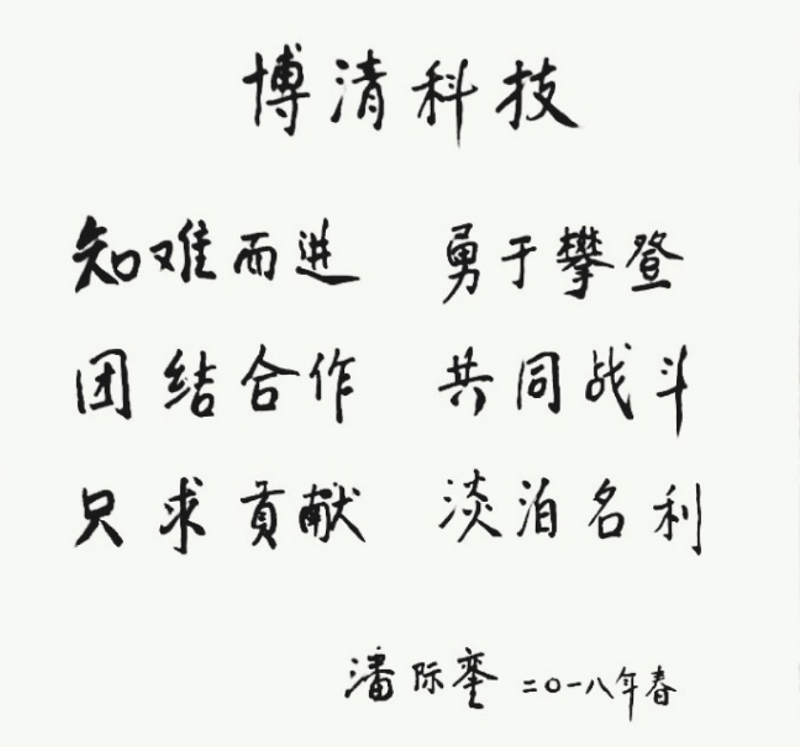 博清科技
知难而进 勇于攀登
团结合作 共同战斗
只求贡献 淡泊名利
潘际銮 二〇一八年春